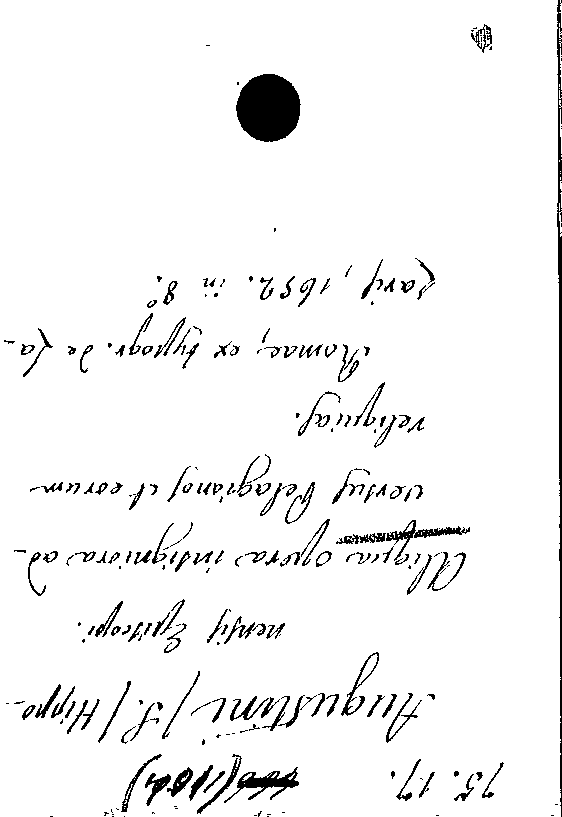 75.17. (1104)
Augustini /S./ Hippo-
nensis Episcopi.
Aliqua opera insigniora ad-
versus Pelagianos et eorum
reliquias.
Romae, ex typogr. de La-
zaris, 1652. in 8°.